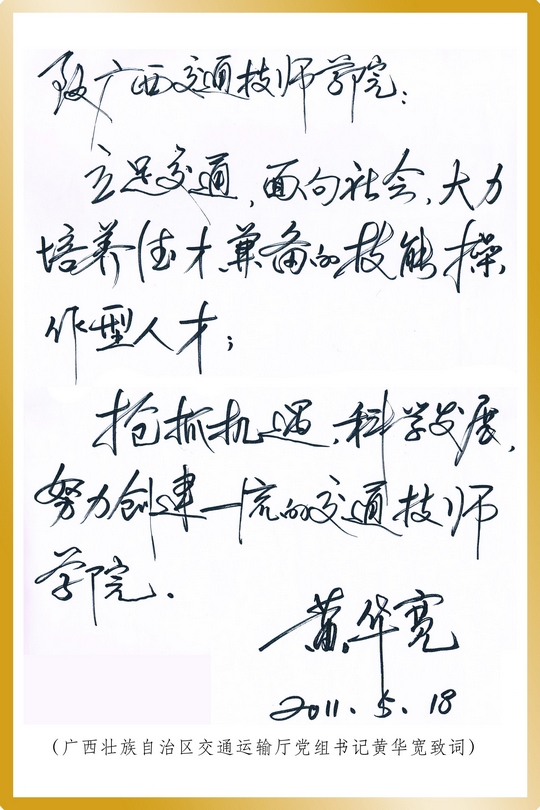 致广西交通技师学院：
立足交通，面向社会，大力
培养德才兼备的技能操
作型人才；
抢抓机遇，科学发展，
努力创建一流的交通技师
学院.
黄华宽
2011.5.18
（广西壮族自治区交通运输厅党组书记黄华宽致词）